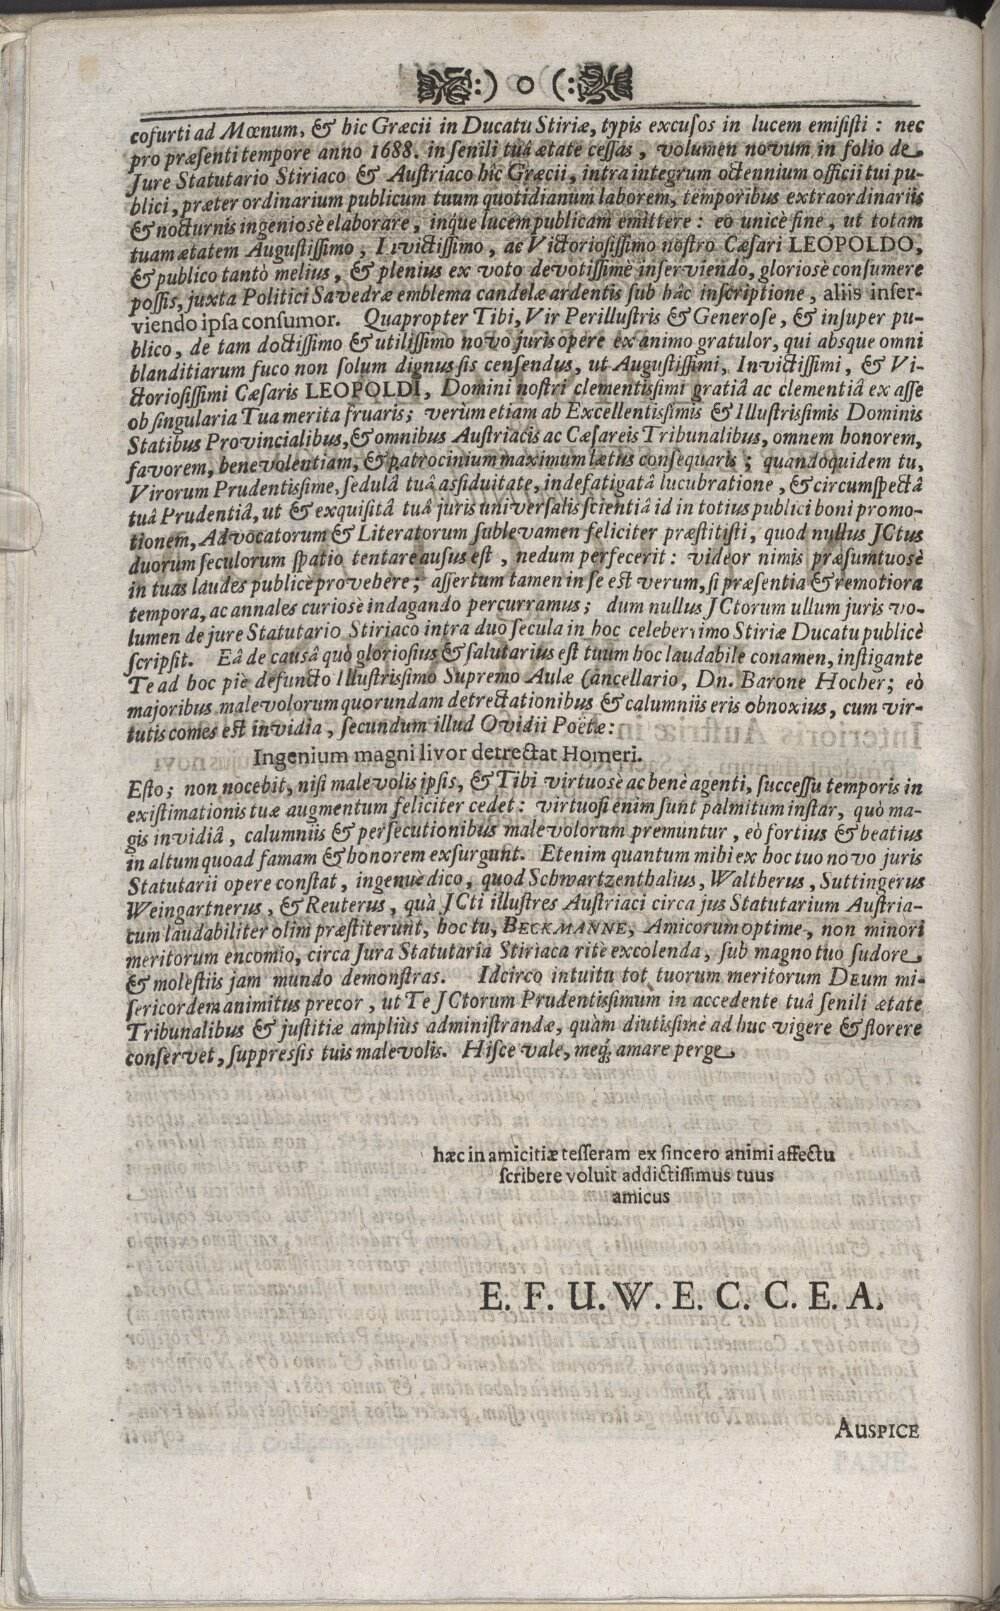 :) o (:
cofurti ad Mœnum, & hic Græcii in Ducatu Stiriæ, typis excusos in lucem emisisti : nec
pro præsenti tempore anno 1688. in senili tuâ ætate cessas, volumen novum in folio de
Jure Statutario Stiriaco & Austriaco hîc Græcii, intra integrum octennium officii tui pu-
blici, præter ordinarium publicum tuum quotidianum laborem, temporibus extraordinariis
& nocturnis ingeniosè elaborare, inque lucem publicam emittere : eo unicè fine, ut totam
tuam ætatem Augustissimo, Invictissimo, ac Victoriosissimo nostro Cæsari LEOPOLDO,
& publico tantò melius, & plenius ex voto devotissimè inserviendo, gloriosè consumere
possis, juxta Politici Savedræ emblema candelæ ardentis sub hâc inscriptione, aliis inser-
viendo ipsa consumor. Quapropter Tibi, Vir Perillustris & Generose, & insuper pu-
blico, de tam doctissimo & utilissimo novo juris opere ex animo gratulor, qui absque omni
blanditiarum fuco non solum dignus sis censendus, ut Augustissimi, Invictissimi, & Vi-
ctoriosissimi Cæsaris LEOPOLDI, Domini nostri clementissimi gratiâ ac clementiâ ex asse
ob singularia Tua merita fruaris; verum etiam ab Excellentissimis & Illustrissimis Dominis
Statibus Provincialibus, & omnibus Austriacis ac Cæsareis Tribunalibus, omnem honorem,
favorem, benevolentiam, & patrocinium maximum lætus consequaris ; quandoquidem tu,
Virorum Prudentissime, sedulâ tuâ assiduitate, indefatigatâ lucubratione, & circumspectâ
tuâ Prudentiâ, ut & exquisitâ tuâ juris universalis scientiâ id in totius publici boni promo-
tionem, Advocatorum & Literatorum sublevamen feliciter præstitisti, quod nullus JCtus
duorum seculorum spatio tentare ausus est, nedum perfecerit : videor nimis præsumtuosè
in tuas laudes publicè provehere ; assertum tamen in se est verum, si præsentia & remotiora
tempora, ac annales curiosè indagando percurramus ; dum nullus JCtorum ullum juris vo-
lumen de jure Statutario Stiriaco intra duo secula in hoc celeberrimo Stiriæ Ducatu publicè
scripsit. Eâ de causâ quò gloriosius & salutarius est tuum hoc laudabile conamen, instigante
Te ad hoc piè defuncto Illustrissimo Supremo Aulæ Cancellario, Dn. Barone Hocher; eò
majoribus malevolorum quorundam detrectationibus & calumniis eris obnoxius, cum vir-
tutis comes est invidia, secundum illud Ovidii Poëtæ :
Ingenium magni livor detrectat Homeri.
Esto; non nocebit, nisi malevolis ipsis, & Tibi virtuosè ac benè agenti, successu temporis in
existimationis tuæ augmentum feliciter cedet : virtuosi enim sunt palmitum instar, quò ma-
gis invidiâ, calumniis & persecutionibus malevolorum premuntur, eò fortius & beatius
in altum quoad famam & honorem exsurgunt. Etenim quantum mihi ex hoc tuo novo juris
Statutarii opere constat, ingenuè dico, quod Schwartzenthalius, Waltherus, Suttingerus
Weingartnerus, & Reuterus, quà JCti illustres Austriaci circa jus Statutarium Austria-
cum laudabiliter olim præstiterunt, hoc tu, BECKMANNE, Amicorum optime, non minori
meritorum encomio, circa Jura Statutaria Stiriaca ritè excolenda, sub magno tuo sudore
& molestiis jam mundo demonstras. Idcirco intuitu tot tuorum meritorum DEum mi-
sericordem animitus precor, ut Te JCtorum Prudentissimum in accedente tuâ senili ætate
Tribunalibus & justitiæ ampliùs administrandæ, quàm diutissimè ad huc vigere & florere
conservet, suppressis tuis malevolis. Hisce vale, meq; amare perge,
hæc in amicitiæ tesseram ex sincero animi affectu
scribere voluit addictissimus tuus
amicus
E. F. U. W. E. C. C. E. A.
AUSPICE